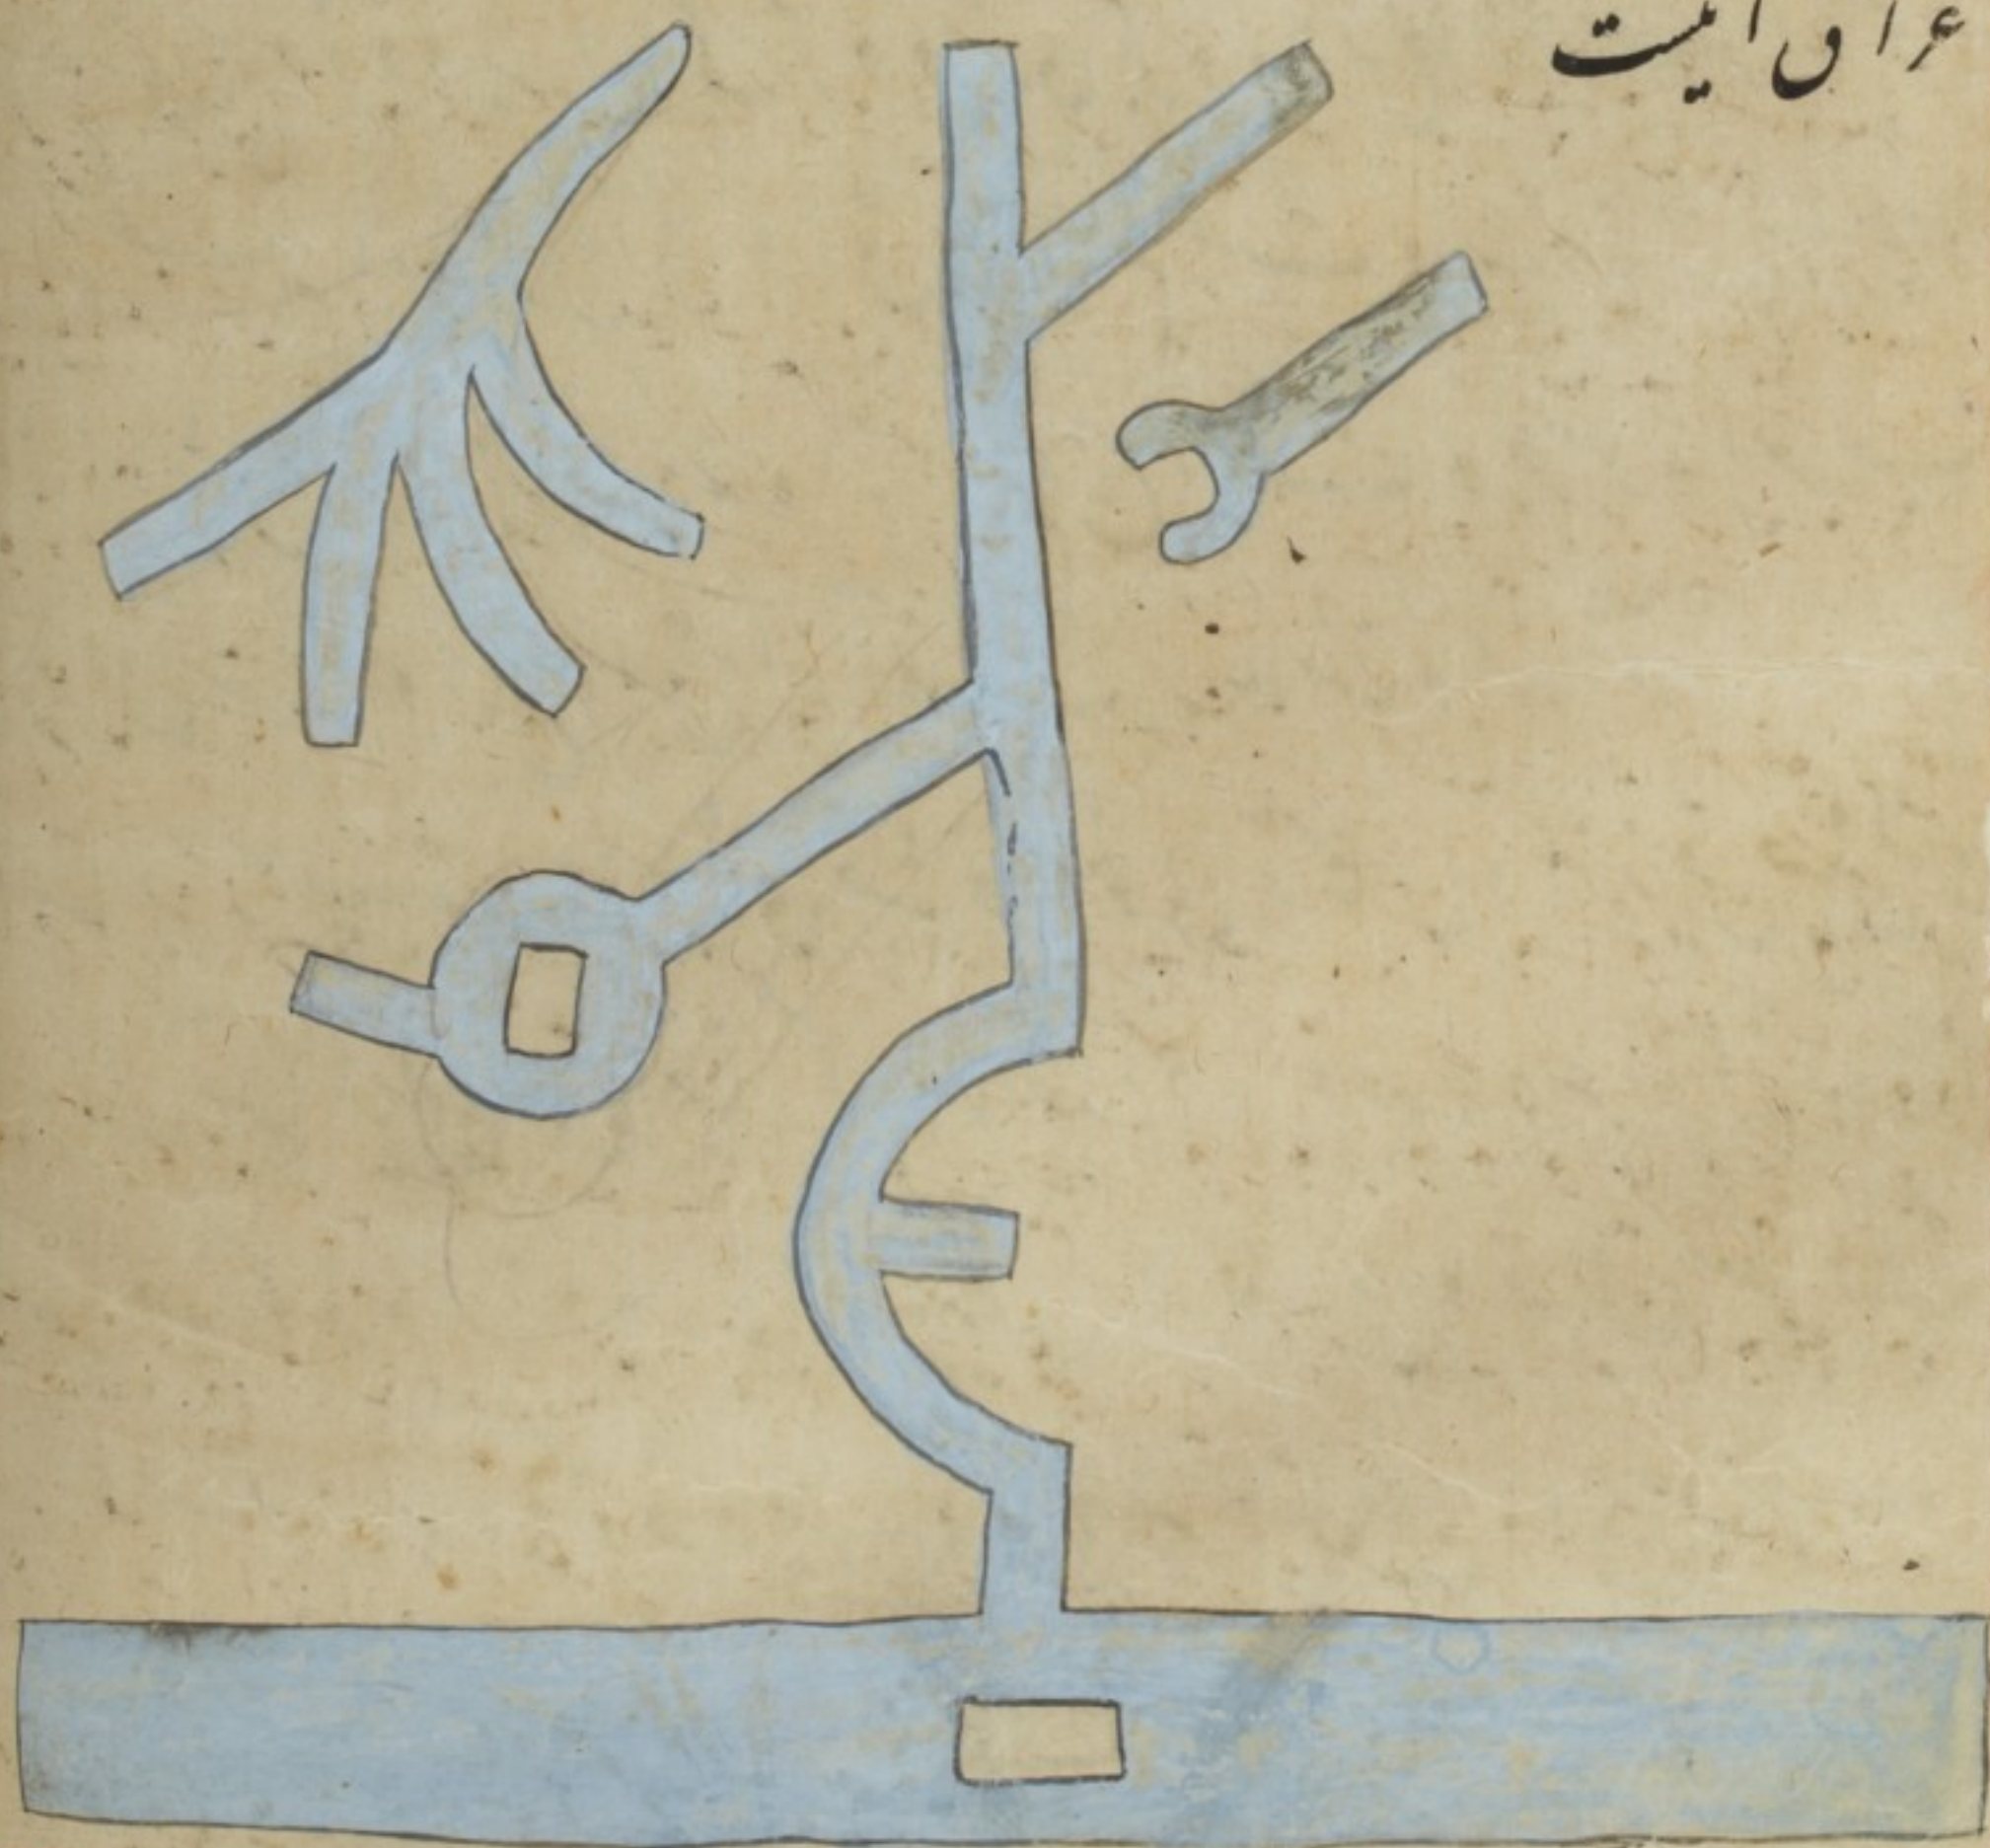 عراق اینست